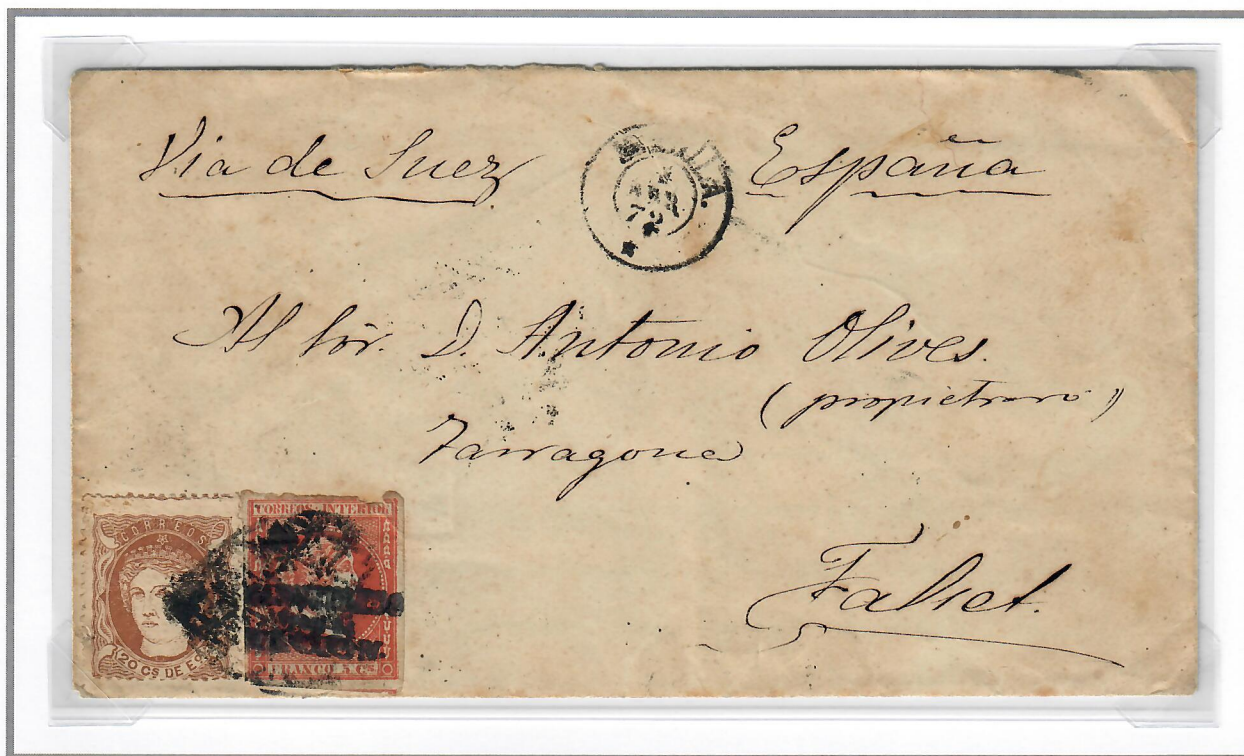 Via de Suez España
ABR
72
Al Sór. D. Antonio Olives.
(propietraro)
Tarragona
Falset.
CORREOS
20 CS DE Es
CORREOS INTERIOR
FRANCO 5 Cs